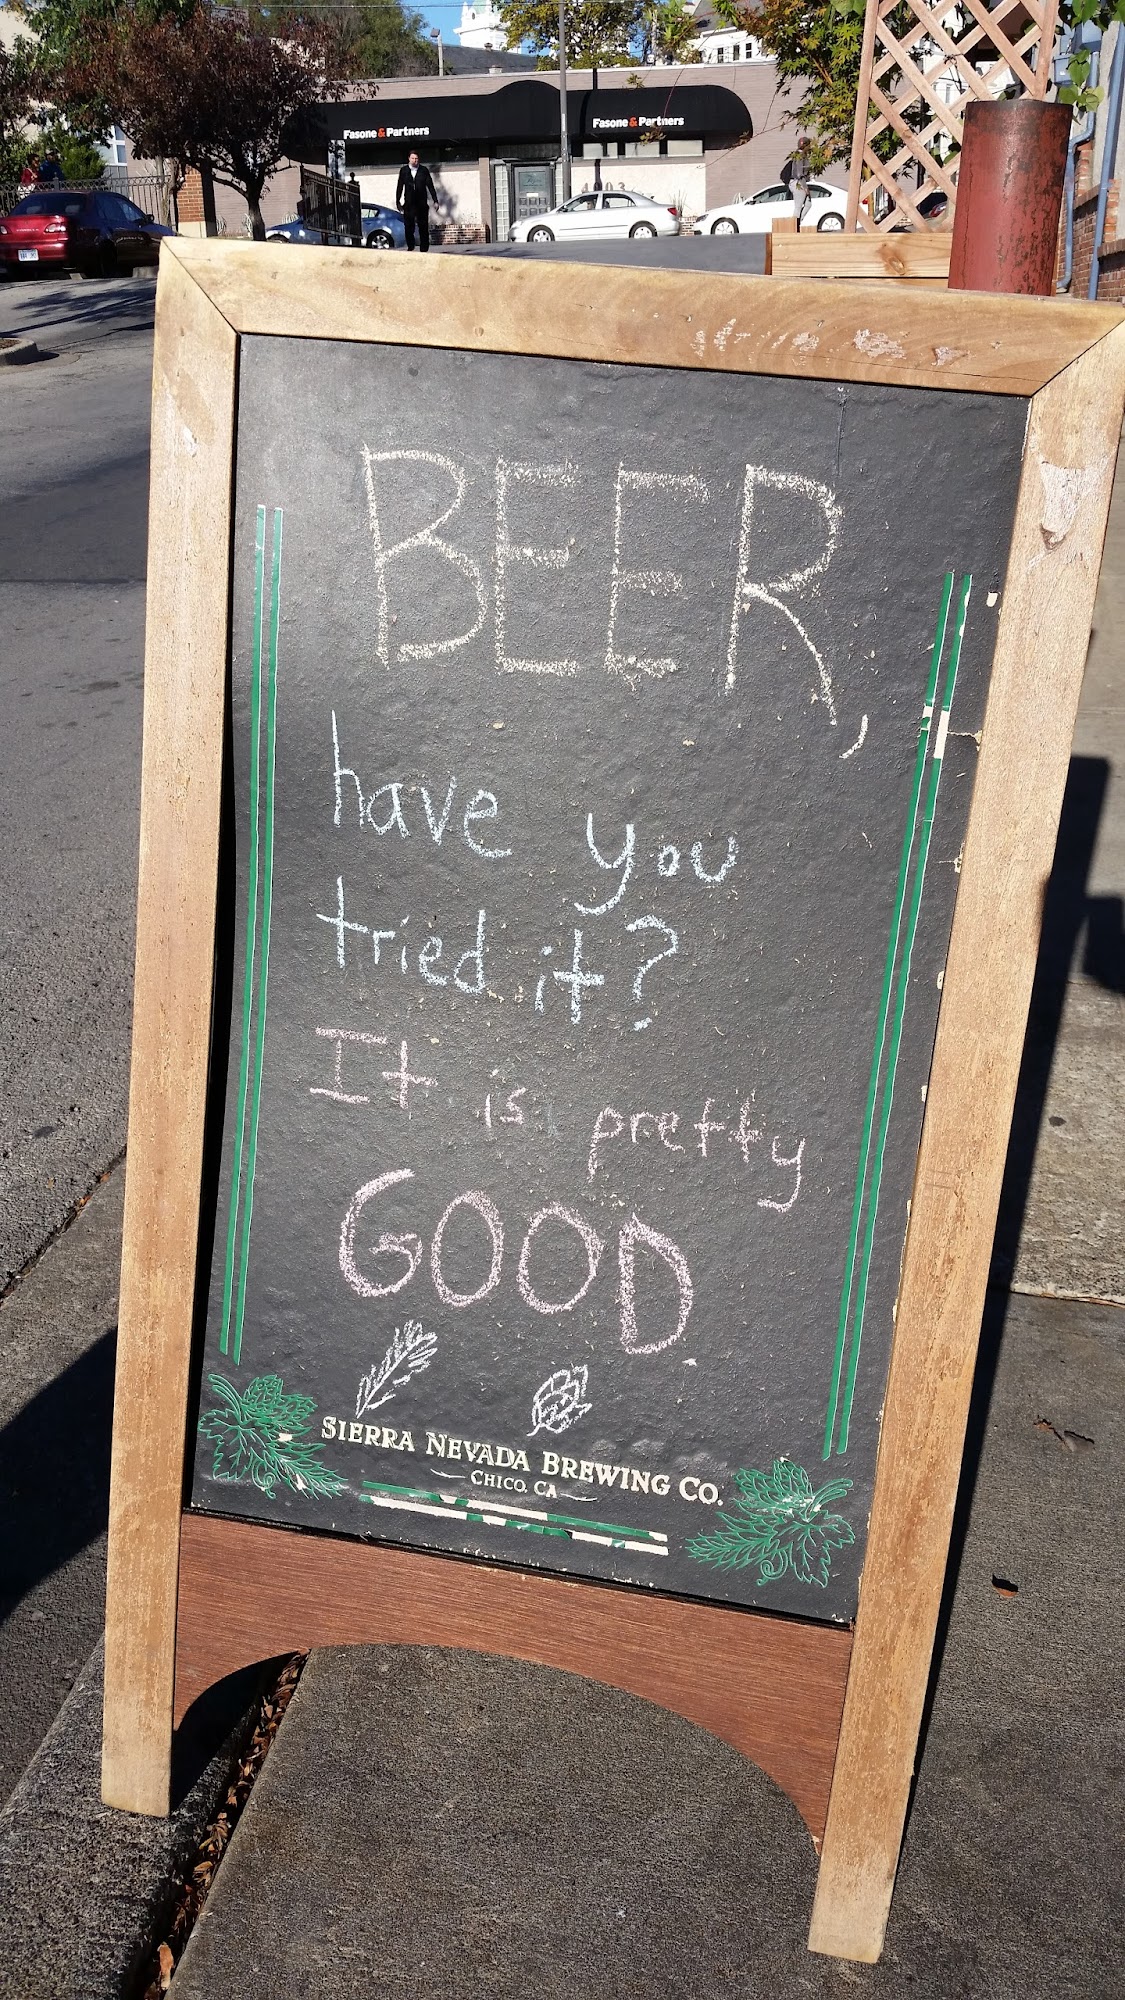 Fasone & Partners
Fasone & Partners
BEER,
have you
tried it?
It is pretty
GOOD.
SIERRA NEVADA BREWING CO.
CHICO, CA